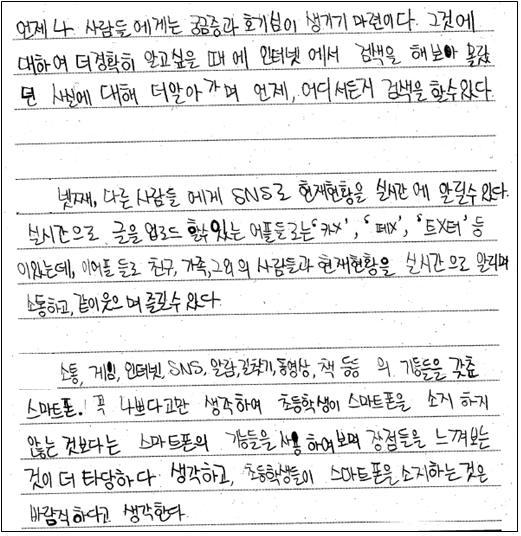 언제나 사람들에게는 궁금증과 호기심이 생기기 마련이다. 그것에
대하여 더정확히 알고싶을 때에 인터넷에서 검색을 해보아 몰랐
던 사실에 대해 더알아가며 언제, 어디서든지 검색을 할수있다.
넷째, 다른 사람들에게 SNS로 현재현황을 실시간에 알릴수있다.
실시간으로 글을 업로드 할수있는 어플들로는 '카X', '페X', '트X터' 등
이있는데, 이어플들로 친구, 가족, 그외의 사람들과 현재현황을 실시간으로 알리며
소통하고, 같이웃으며 즐길수 있다.
소통, 게임, 인터넷, SNS, 알람, 길찾기, 동영상, 책 등등 의 기능들을 갖춘
스마트폰. 꼭 나쁘다고만 생각하여 초등학생이 스마트폰을 소지 하지
않는 것보다는 스마트폰의 기능들을 사용하여보며 장점들을 느껴보는
것이 더 타당하다 생각하고, 초등학생들이 스마트폰을 소지하는것은
바람직하다고 생각한다.